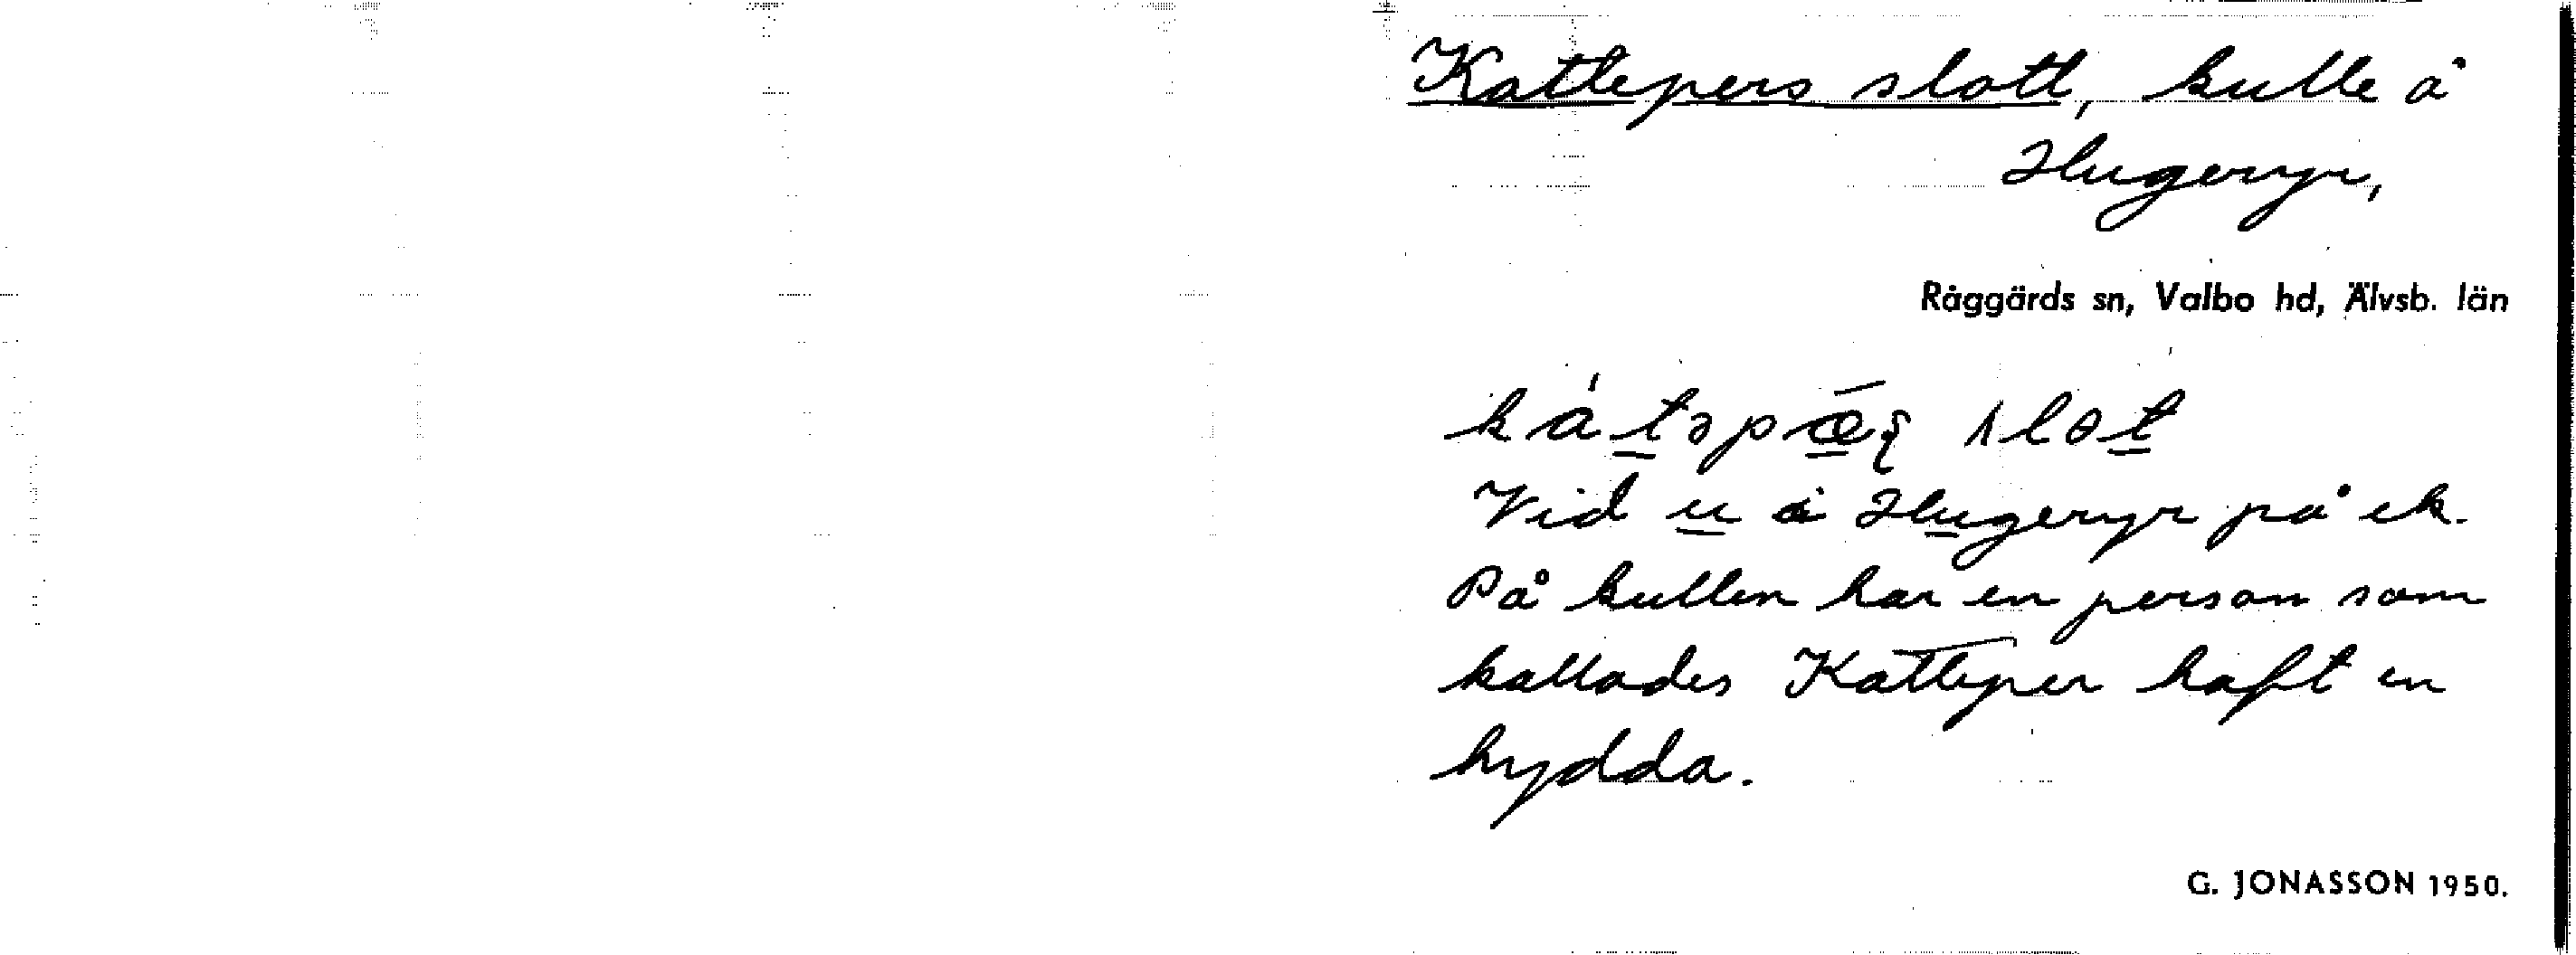 Kattepers slott, kulle å
Hugeryr,
Råggärds sn, Valbo hd, Älvsb. län
kátəpǽʂ slɵt
Vid u i Hugeryr på ek.
På kullen har en person som
kallades Katteper haft en
hydda.
G. JONASSON 1950.